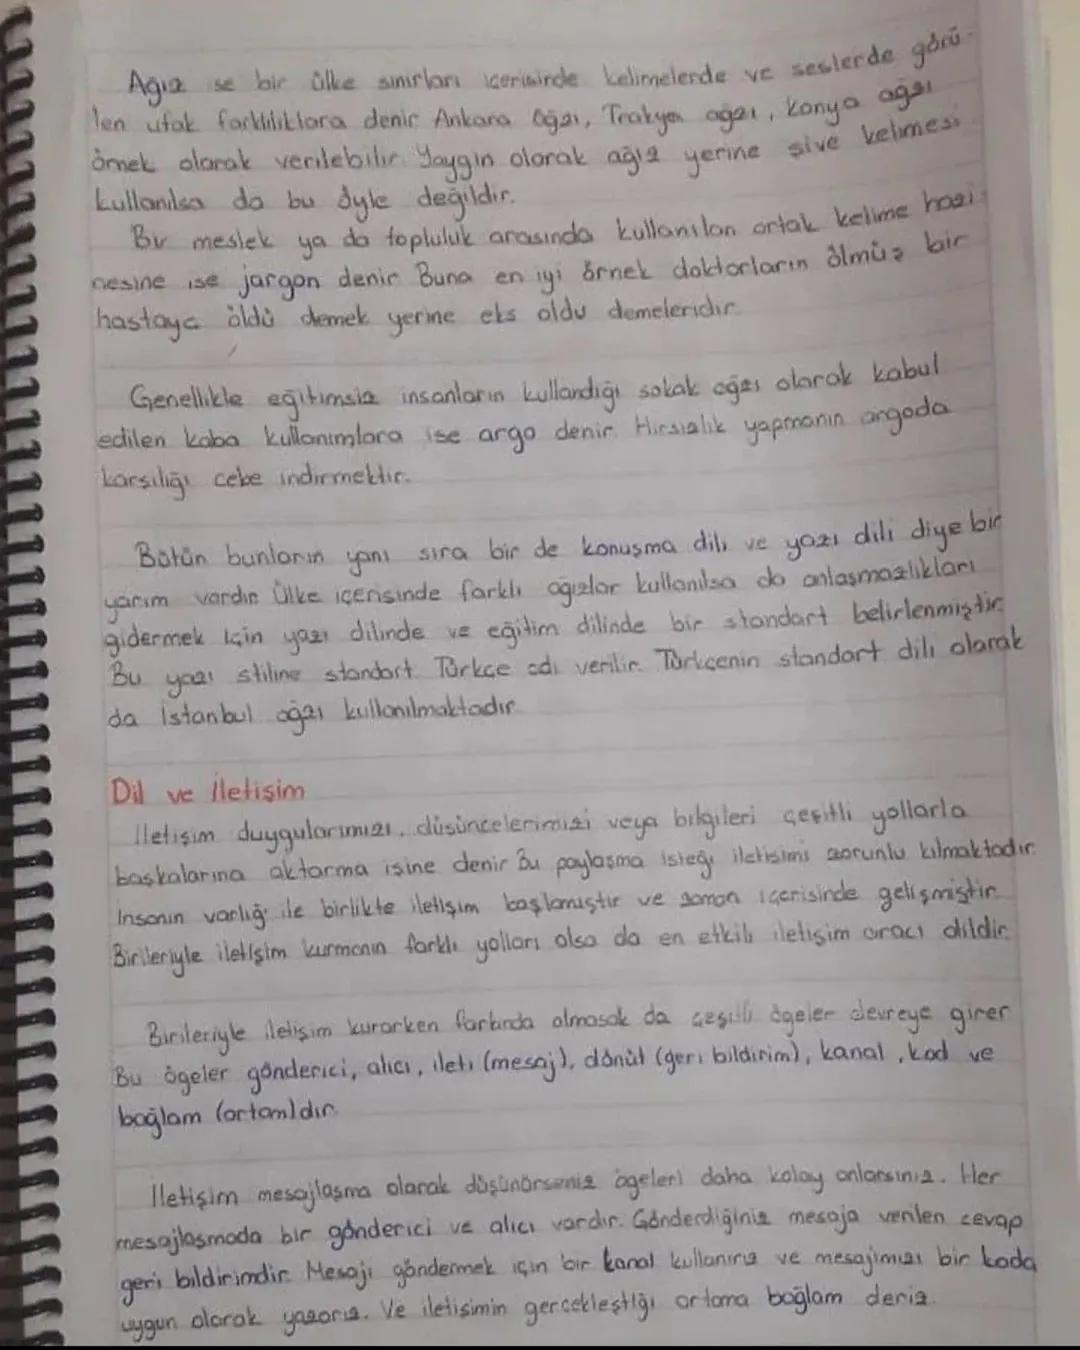 Ağız ise bir ülke sınırları içerisinde kelimelerde ve seslerde görü-
len ufak farklılıklara denir. Ankara ağzı, Trakya ağzı, Konya ağzı
örnek olarak verilebilir. Yaygın olarak ağız yerine şive kelimesi
kullanılsa da bu öyle değildir.
Bir meslek ya da topluluk arasında kullanılan ortak kelime hazi-
nesine ise jargon denir. Buna en iyi örnek doktorların ölmüş bir
hastaya öldü demek yerine eks oldu demeleridir.
Genellikle eğitimsiz insanların kullandığı sokak ağzı olarak kabul
edilen kaba kullanımlara ise argo denir. Hırsızlık yapmanın argoda
karşılığı cebe indirmektir.
Bütün bunların yanı sıra bir de konuşma dili ve yazı dili diye bir
yarım vardır. Ülke içerisinde farklı ağızlar kullanılsa da anlaşmazlıkları
gidermek için yazı dilinde ve eğitim dilinde bir standart belirlenmiştir.
Bu yazı stiline standart Türkçe adı verilir. Türkçenin standart dili olarak
da İstanbul ağzı kullanılmaktadır.
Dil ve İletişim
İletişim duygularımızı, düşüncelerimizi veya bilgileri çeşitli yollarla
başkalarına aktarma işine denir. Bu paylaşma isteği iletişimi zorunlu kılmaktadır.
İnsanın varlığı ile birlikte iletişim başlamıştır ve zaman içerisinde gelişmiştir.
Birileriyle iletişim kurmanın farklı yolları olsa da en etkili iletişim aracı dildir.
Birileriyle iletişim kurarken farkında olmasak da çeşitli ögeler devreye girer
Bu ögeler gönderici, alıcı, ileti (mesaj), dönüt (geri bildirim), kanal, kod ve
bağlam (ortam)dır.
İletişim mesajlaşma olarak düşünürseniz ögeleri daha kolay anlarsınız. Her
mesajlaşmada bir gönderici ve alıcı vardır. Gönderdiğiniz mesaja verilen cevap
geri bildirimdir. Mesajı göndermek için bir kanal kullanırız ve mesajımızı bir koda
uygun olarak yazarız. Ve iletişimin gerçekleştiği ortama bağlam deriz.